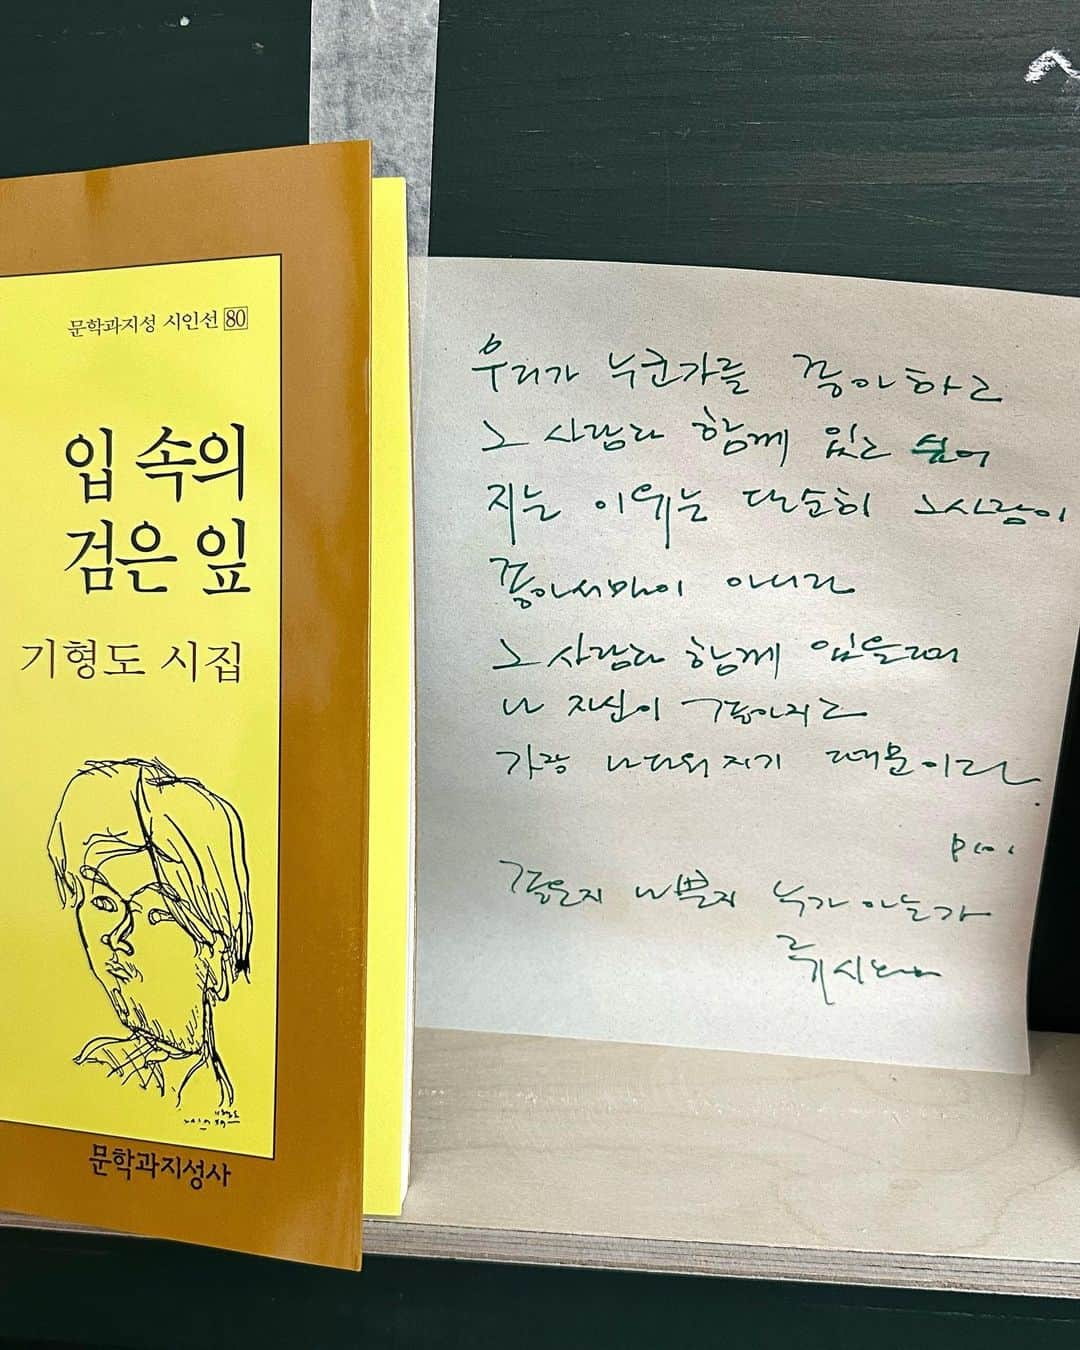 문학과지성 시인선 80
입 속의
검은 잎
기형도 시집
문학과지성사
우리가 누군가를 좋아하고
그 사람과 함께 있고 싶어
지는 이유는 단순히 그 사람이
좋아서만이 아니라
그 사람과 함께 있을 때
나 자신이 좋아지고
가장 나다워지기 때문이다.
좋은지 나쁜지 누가 아는가
류시화